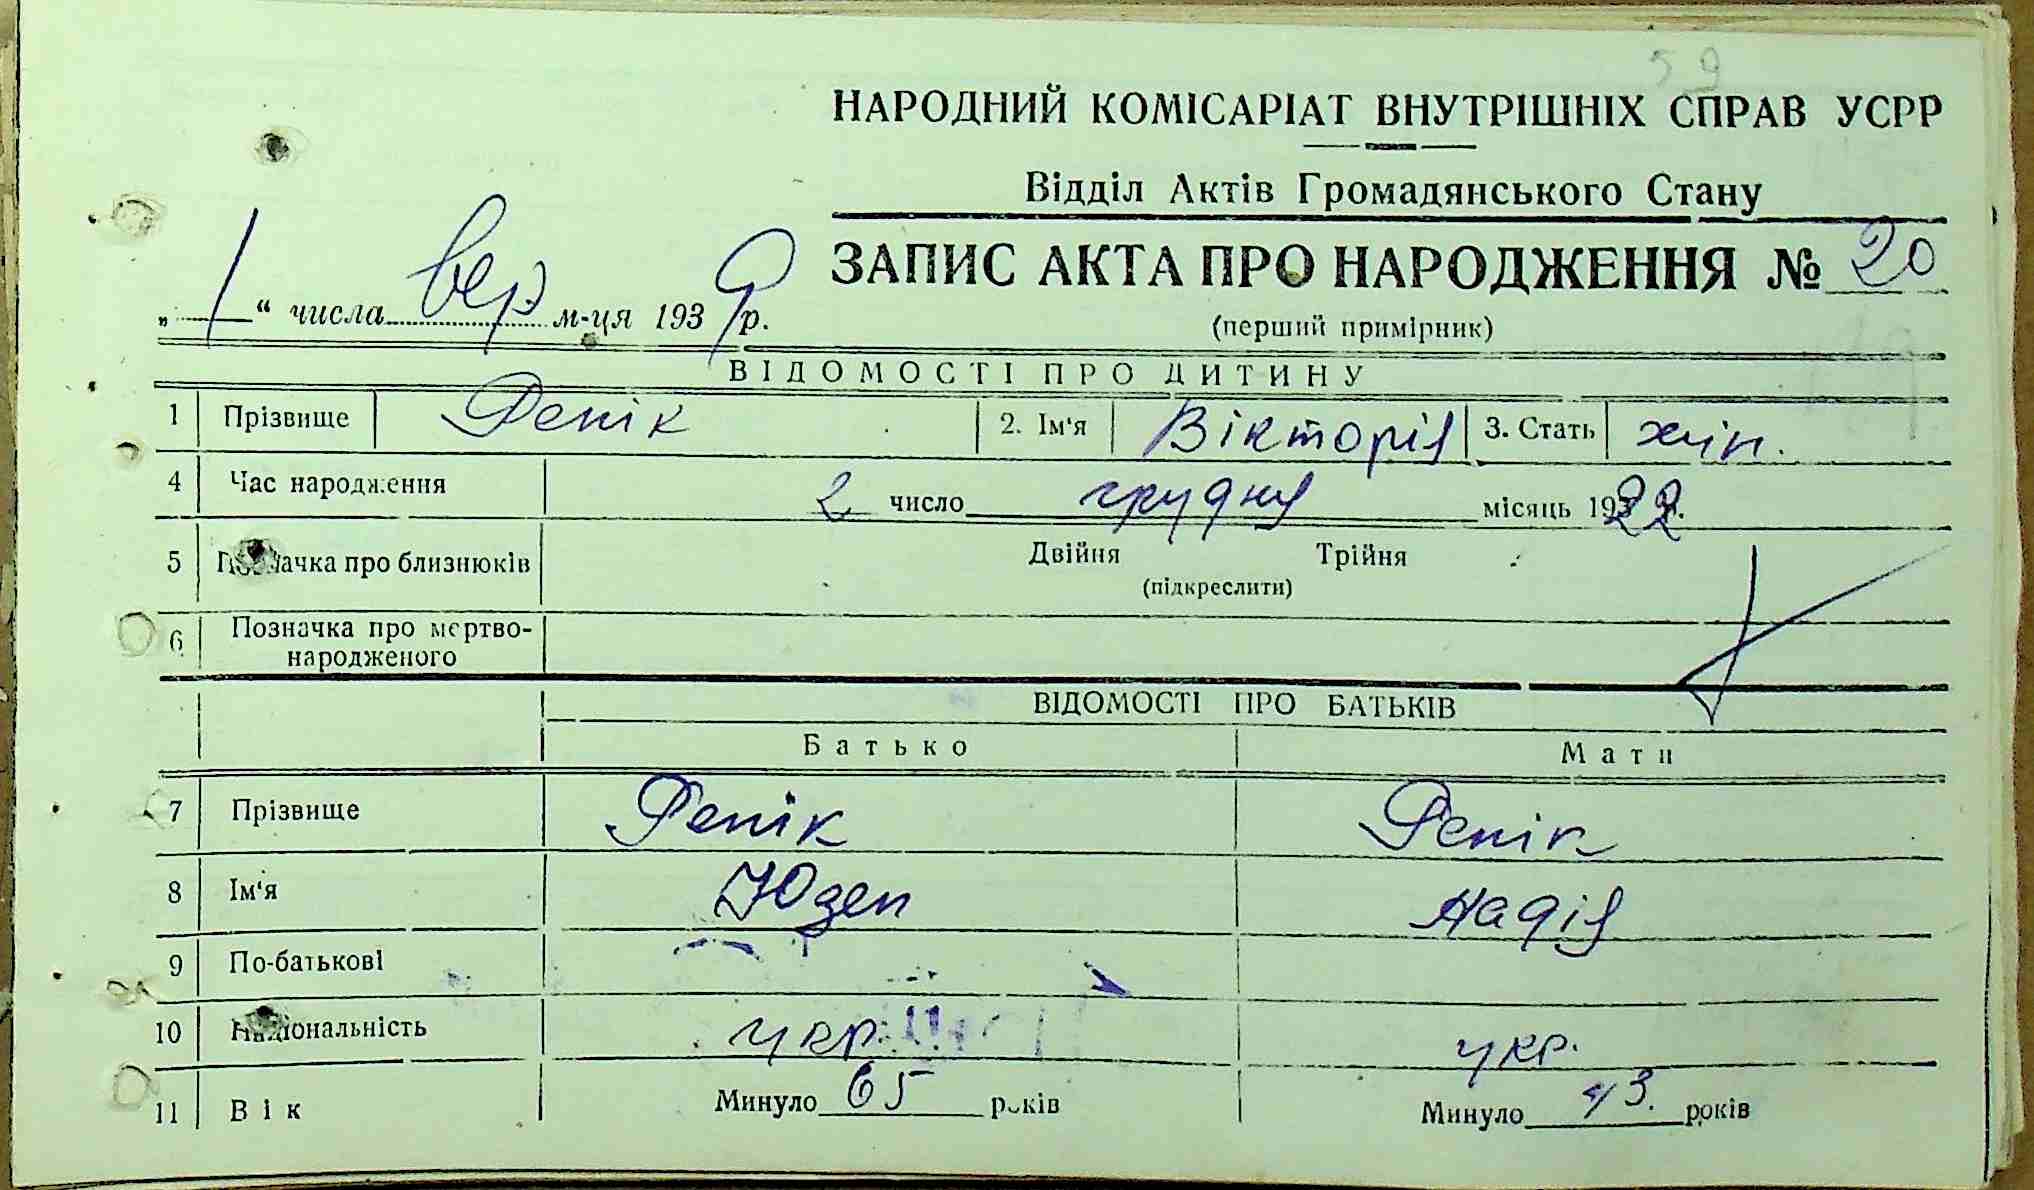 59
НАРОДНИЙ КОМІСАРІАТ ВНУТРІШНІХ СПРАВ УСРР
Відділ Актів Громадянського Стану
ЗАПИС АКТА ПРО НАРОДЖЕННЯ № 20
(перший примірник)
„1“ числа вер м-ця 1939 р.
ВІДОМОСТІ ПРО ДИТИНУ
1 Прізвище Репік 2. Ім'я Вікторія 3. Стать жін.
4 Час народження 2 число грудня місяць 1922 р.
5 Позначка про близнюків Двійня Трійня
(підкреслити)
6 Позначка про мертво-
народженого
ВІДОМОСТІ ПРО БАТЬКІВ
Батько Мати
7 Прізвище Репік Репік
8 Ім'я Юзеп Надія
9 По-батькові
10 Національність укр. укр.
11 Вік Минуло 65 років Минуло 43. років